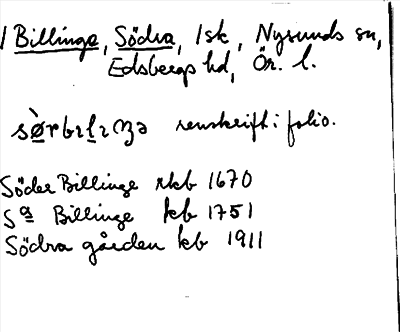 / Billinge, Södra, 1sk, Nysunds sn,
Edsbergs hd, Ör. l.
renskrift i folio.
Söder Billinge rkb 1670
Sa Billinge kb 1751
Södra gården kb 1911